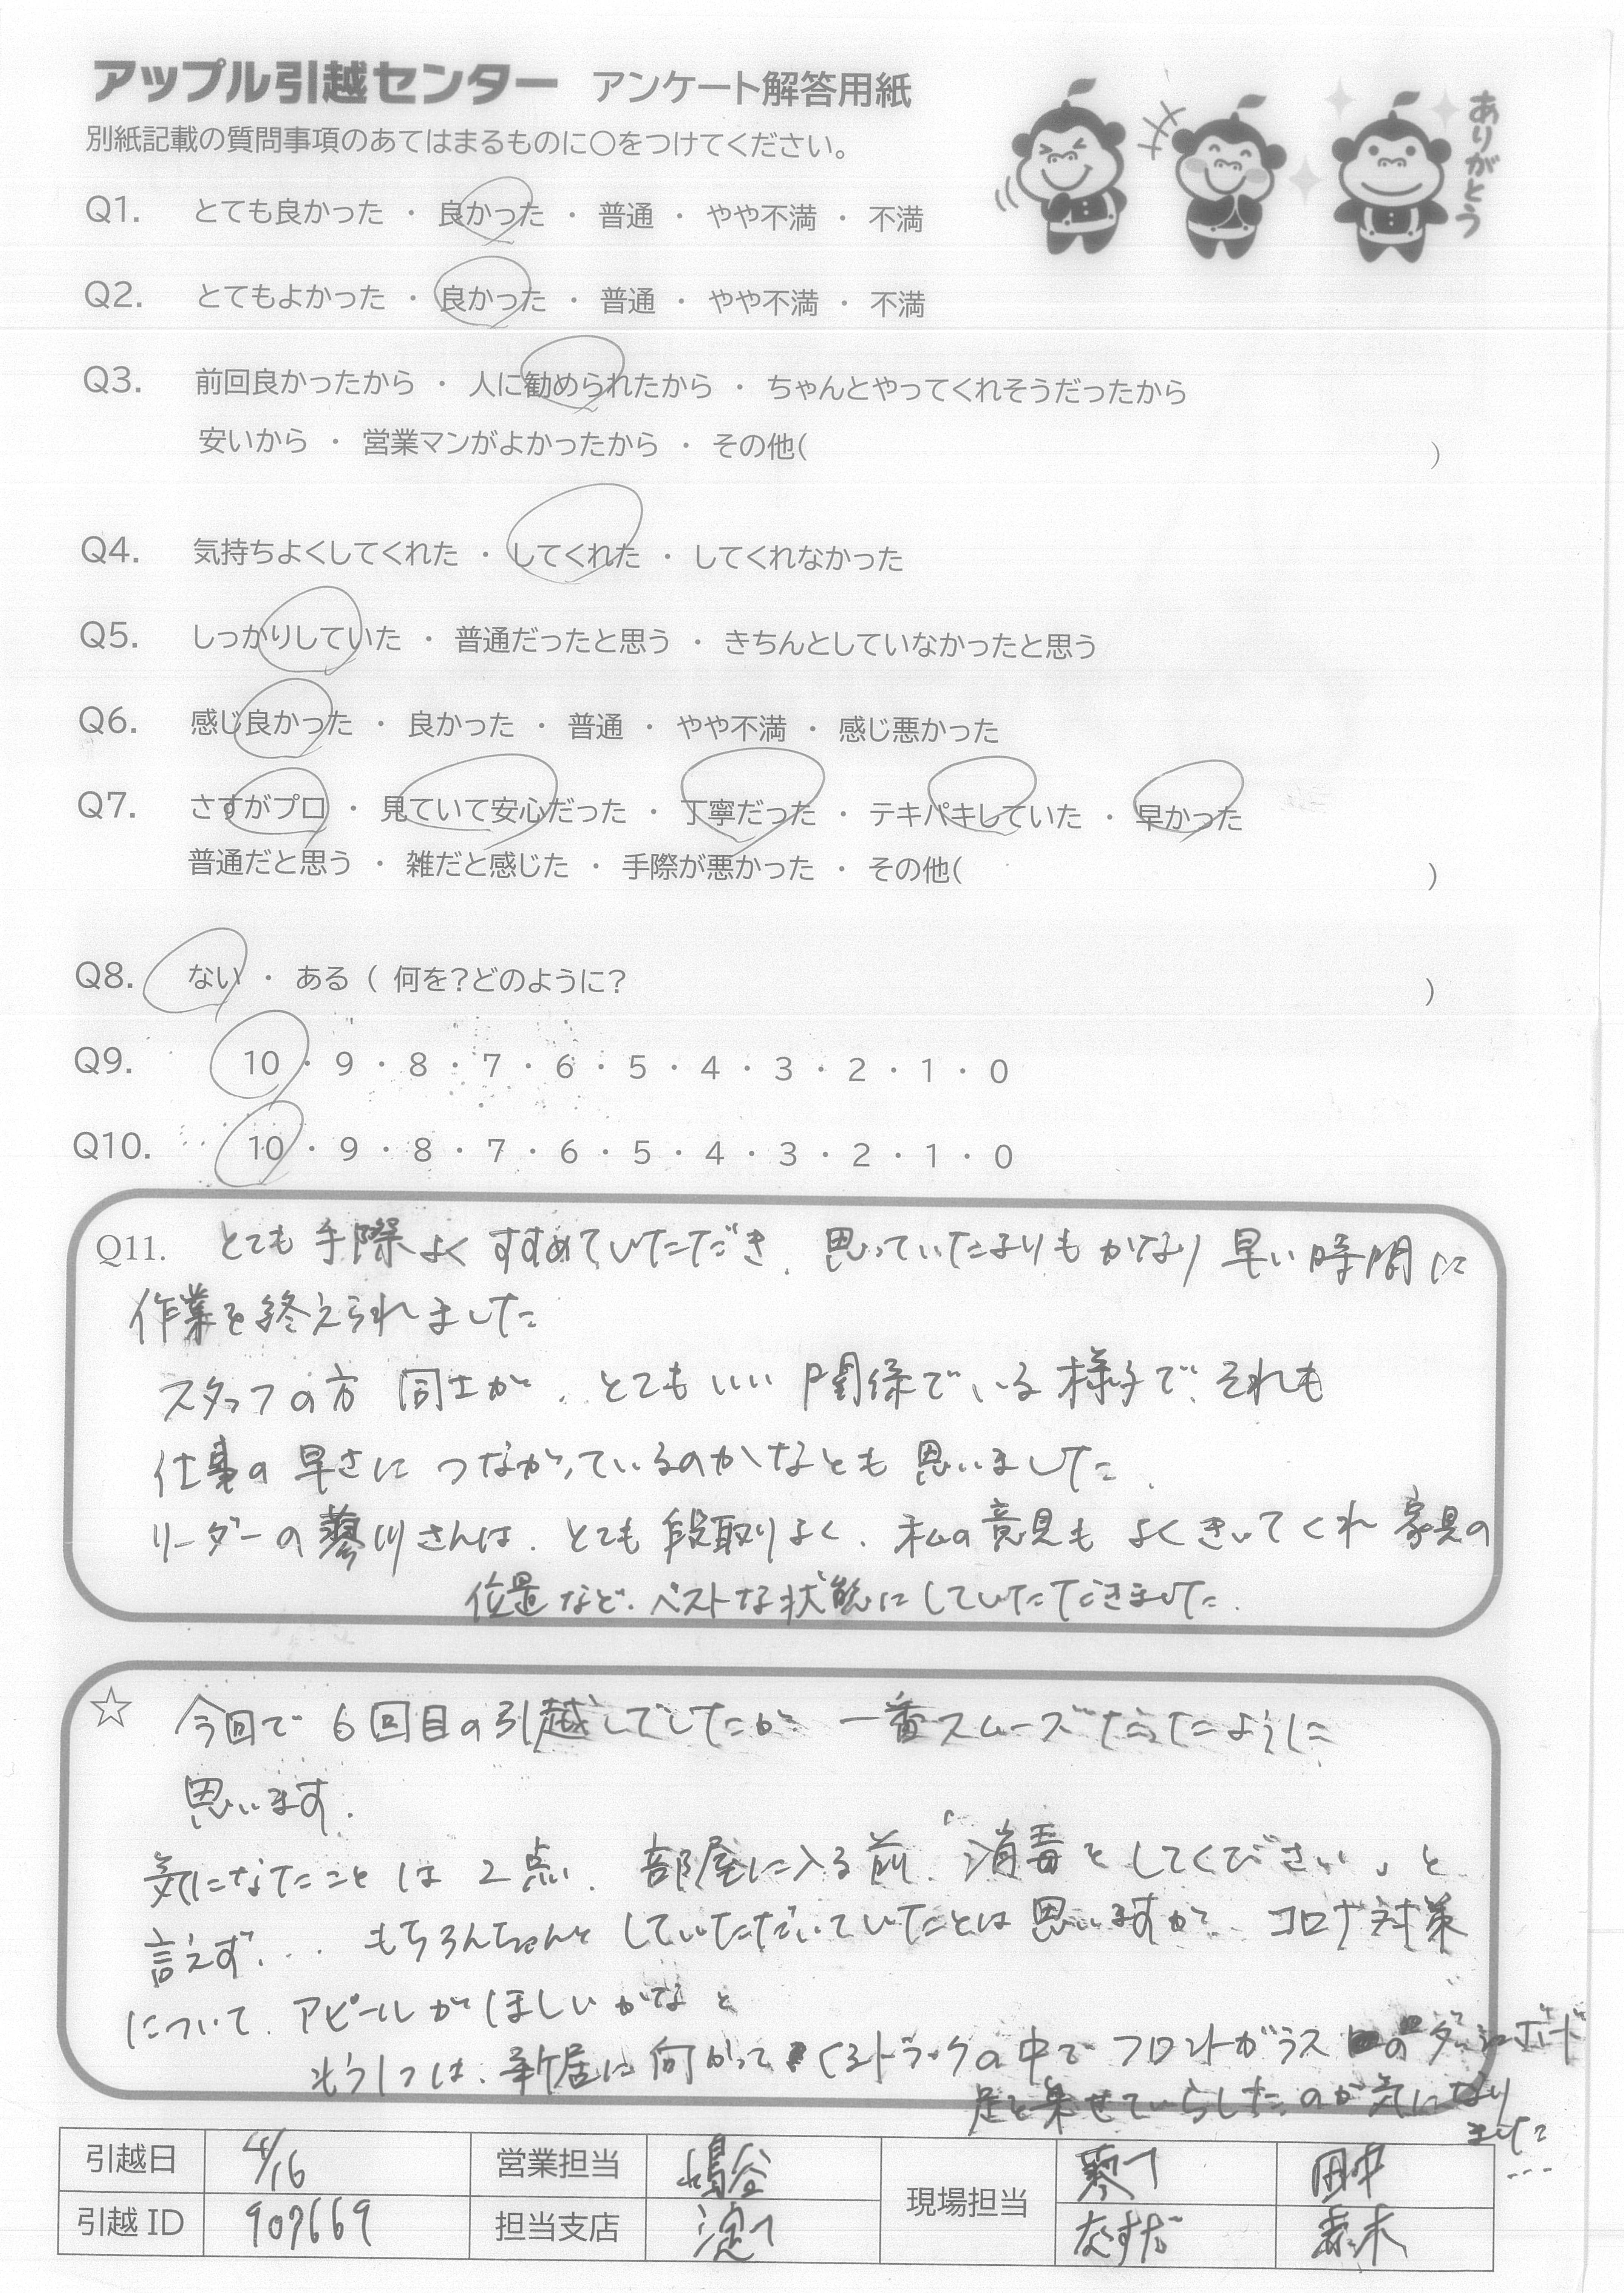 アップル引越センター アンケート解答用紙
別紙記載の質問事項のあてはまるものに○をつけてください。
ありがとう
Q1. とても良かった ・ 良かった ・ 普通 ・ やや不満 ・ 不満
Q2. とてもよかった ・ 良かった ・ 普通 ・ やや不満 ・ 不満
Q3. 前回良かったから ・ 人に勧められたから ・ ちゃんとやってくれそうだったから
安いから ・ 営業マンがよかったから ・ その他( )
Q4. 気持ちよくしてくれた ・ してくれた ・ してくれなかった
Q5. しっかりしていた ・ 普通だったと思う ・ きちんとしていなかったと思う
Q6. 感じ良かった ・ 良かった ・ 普通 ・ やや不満 ・ 感じ悪かった
Q7. さすがプロ ・ 見ていて安心だった ・ 丁寧だった ・ テキパキしていた ・ 早かった
普通だと思う ・ 雑だと感じた ・ 手際が悪かった ・ その他( )
Q8. ない ・ ある ( 何を?どのように? )
Q9. 10 ・ 9 ・ 8 ・ 7 ・ 6 ・ 5 ・ 4 ・ 3 ・ 2 ・ 1 ・ 0
Q10. 10 ・ 9 ・ 8 ・ 7 ・ 6 ・ 5 ・ 4 ・ 3 ・ 2 ・ 1 ・ 0
Q11. とても手際よくすすめていただき、思っていたよりもかなり早い時間に
作業を終えられました
スタッフの方同士が、とてもいい関係でいる様子で、それも
仕事の早さにつながっているのかなとも思いました。
リーダーの 川さんは、とても段取りよく、私の意見もよくきいてくれ家具の
位置など、ベストな状態にしていただきました。
☆ 今回で6回目の引越しでしたが 一番スムーズだったように
思います。
気になったことは2点、部屋に入る前、「消毒をしてください」と
言えず... もちろんちゃんとしていただいていたことは思いますが、コロナ対策
について、アピールがほしいかなと
もう1つは、新居に向かってくるトラックの中でフロントガラスのダッシュボード
足を乗せていらしたのが気になり
ました...
引越日 4/16 営業担当 嶋谷 現場担当 田中
引越ID 907669 担当支店 なすだ 森木